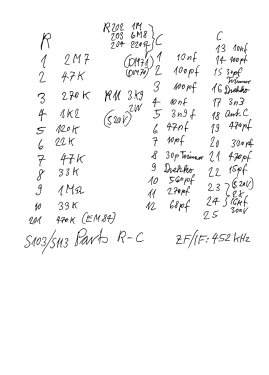 R202 1M
203 6M8
204 220Ω
(DM71)
(DM70)
R
1 2M7
2 47K
3 270K
4 1K2
5 120K
6 22K
7 47K
8 33K
9 1MΩ
10 39K
201 470K (EM84)
R11 3K9
2W
(520V)
C
1 10nf
2 100pf
3 100pf
4 10nf
5 3n9f
6 47nf
7 10pf
8 30p Trimmer
9 Drehko
10 560pf
11 270pf
12 68pf
C
13 10nf
14 100pf
15 30pf
Trimmer
16 Drehko
17 3n3
18 Ant.C
19 470pf
20 300pf
21 470pf
22 15pf
23 (520V)
24
25 300V
S103/S113 Parts R-C
ZF/IF: 452 kHz